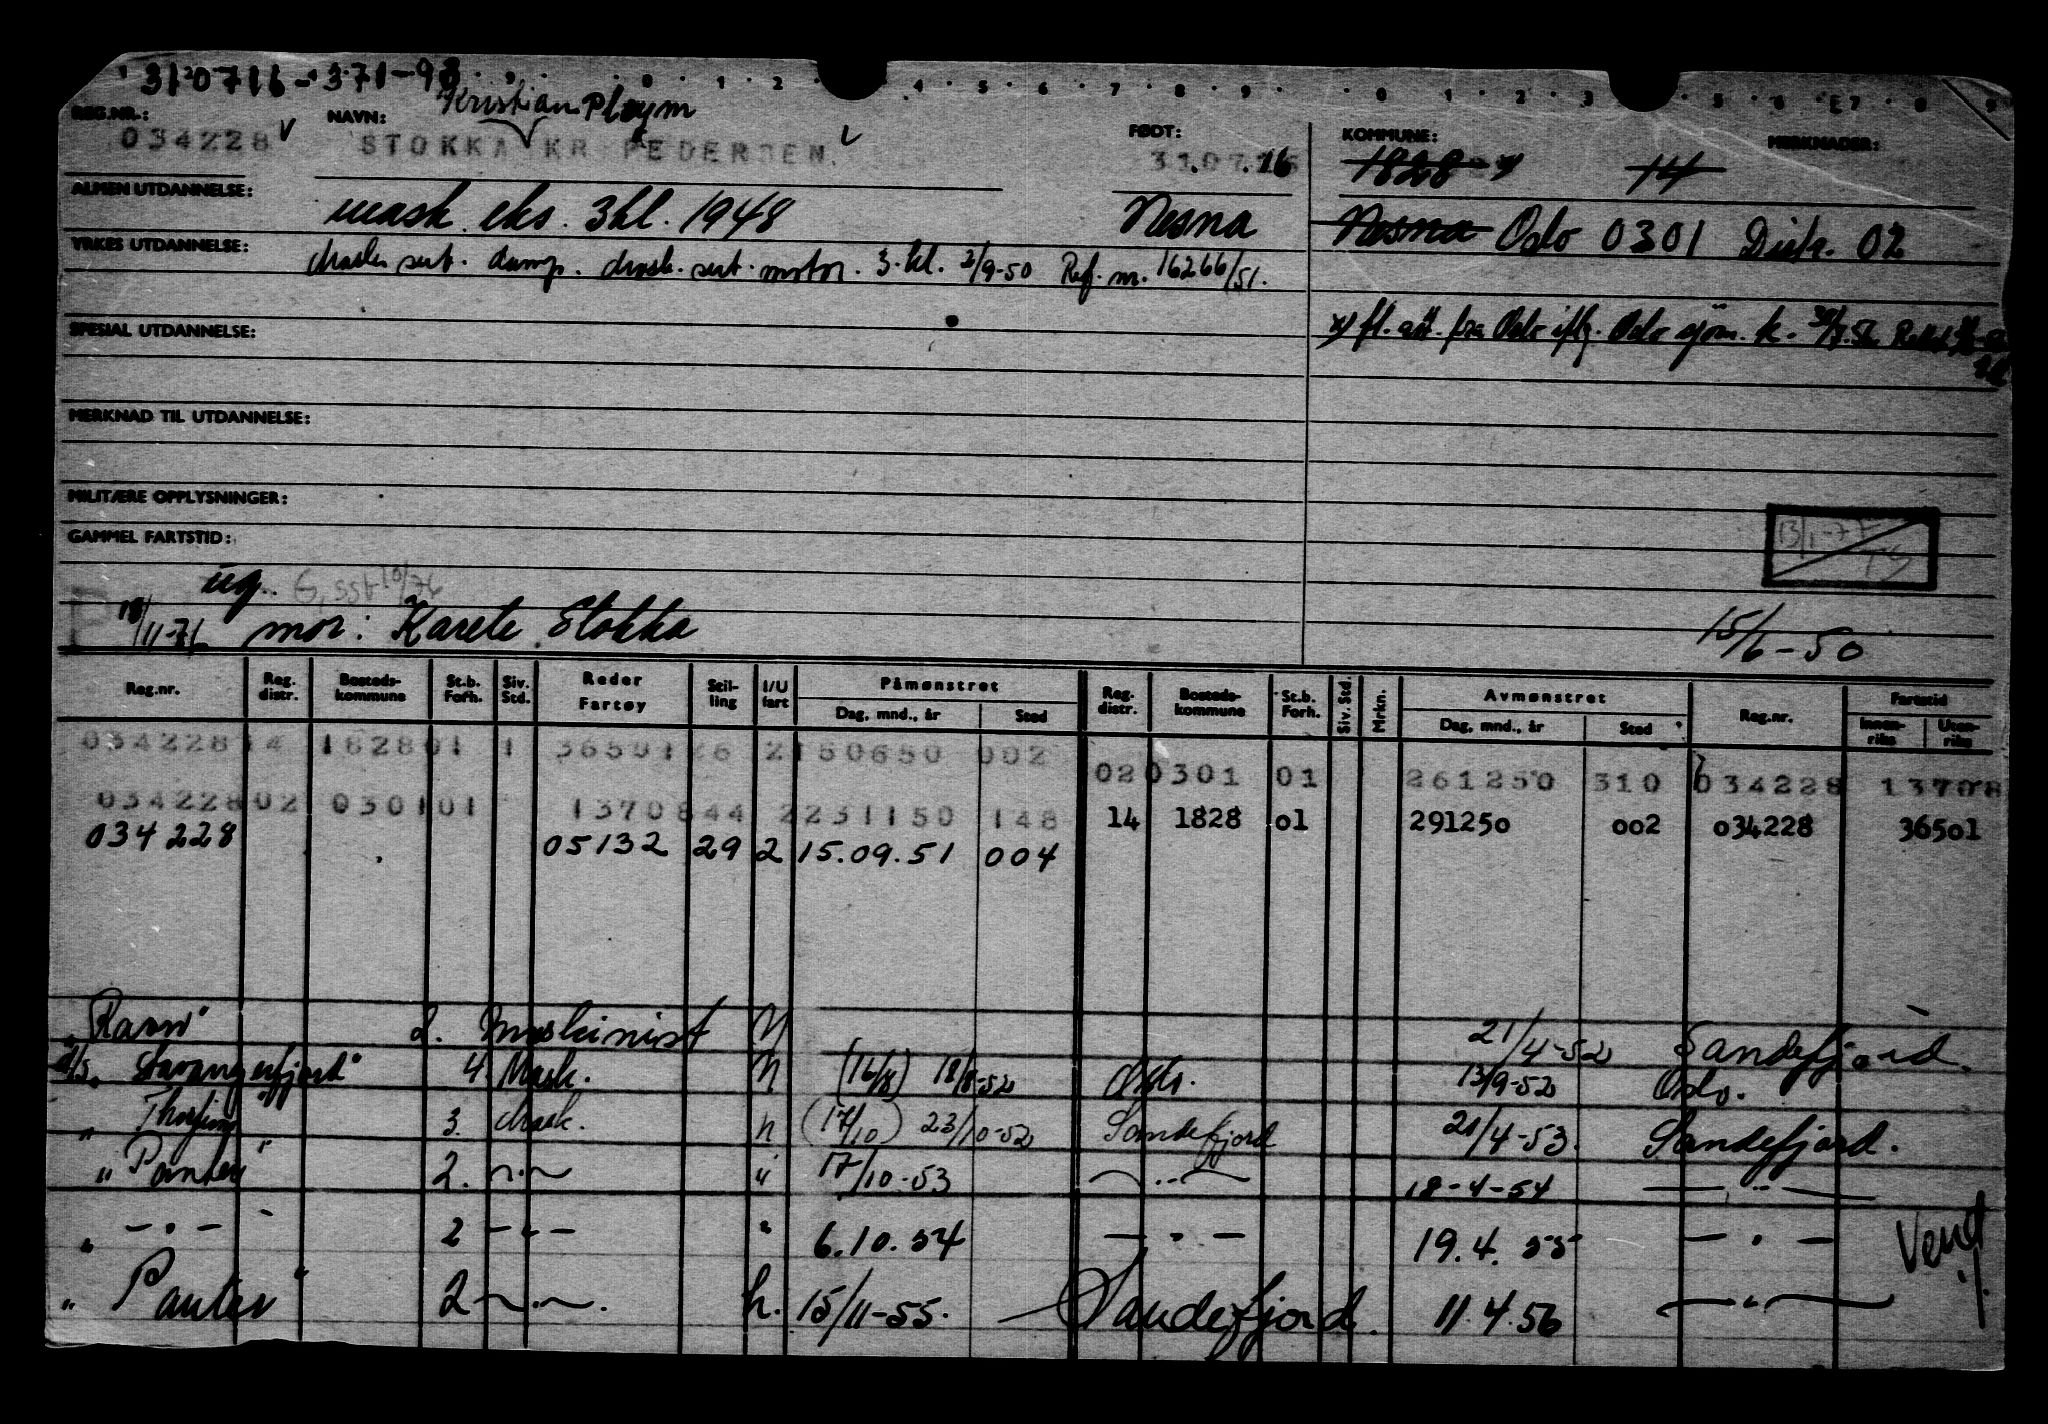 310716-371-98
REG.NR.: NAVN: Kristian Pløym FØDT: KOMMUNE: MERKNADER:
034228 STOKKA KR PEDERSEN 31.07.16 1828 14
ALMEN UTDANNELSE: mask. eks. 3kl. 1948 Nesna Nesna Oslo 0301 Distr. 02
YRKES UTDANNELSE: Mask. sert. damp. mask. sert. motor. 3. kl. 2/9-50 Ref. nr. 16266/51.
SPESIAL UTDANNELSE: x) fl. att. fra Oslo iflg. Oslo sjøm. k.
MERKNAD TIL UTDANNELSE:
MILITÆRE OPPLYSNINGER:
13/1-77 TS
GAMMEL FARTSTID:
ug. G, sst 10/76
18/11-76 mor: Karete Stokka 15/6-50
Reg.nr. Reg. distr. Bosteds-kommune St.b. Forh. Siv. Std. Reder Fartøy Stil-ling I/U fart Påmønstret Dag, mnd., år Sted Reg. distr. Bosteds-kommune St.b. Forh. Siv. Std. Mrkn. Avmønstret Dag, mnd., år Sted Reg.nr. Fartstid Innen-riks Uten-riks
034228 14 1828 01 1 36501 26 2 150650 002
02 0301 01 261250 310 034228 13708
034228 02 0301 01 13708 44 2 231150 148
14 1828 01 291250 002 034228 36501
034228 05132 29 2 15.09.51 004
"Ravn" 2. Maskinist N 21/4-52 Sandefjord.
d/s "Stavangerfjord" 4. Mask. N (16/8) 18/8-52 Oslo. 13/9-52 Oslo.
" 3. Mask. n (17/10) 23/10-52 Sandefjord 21/4-53. Sandefjord.
" Panter" 2. -"- " 17/10-53 -"- 18-4-54 -"-
" - " - 2 - " - " 6.10.54 - " - 19.4.55 - " -
" Panter" 2 -"-. h. 15/11-55. Sandefjord. 11.4.56 -"-
Vend!